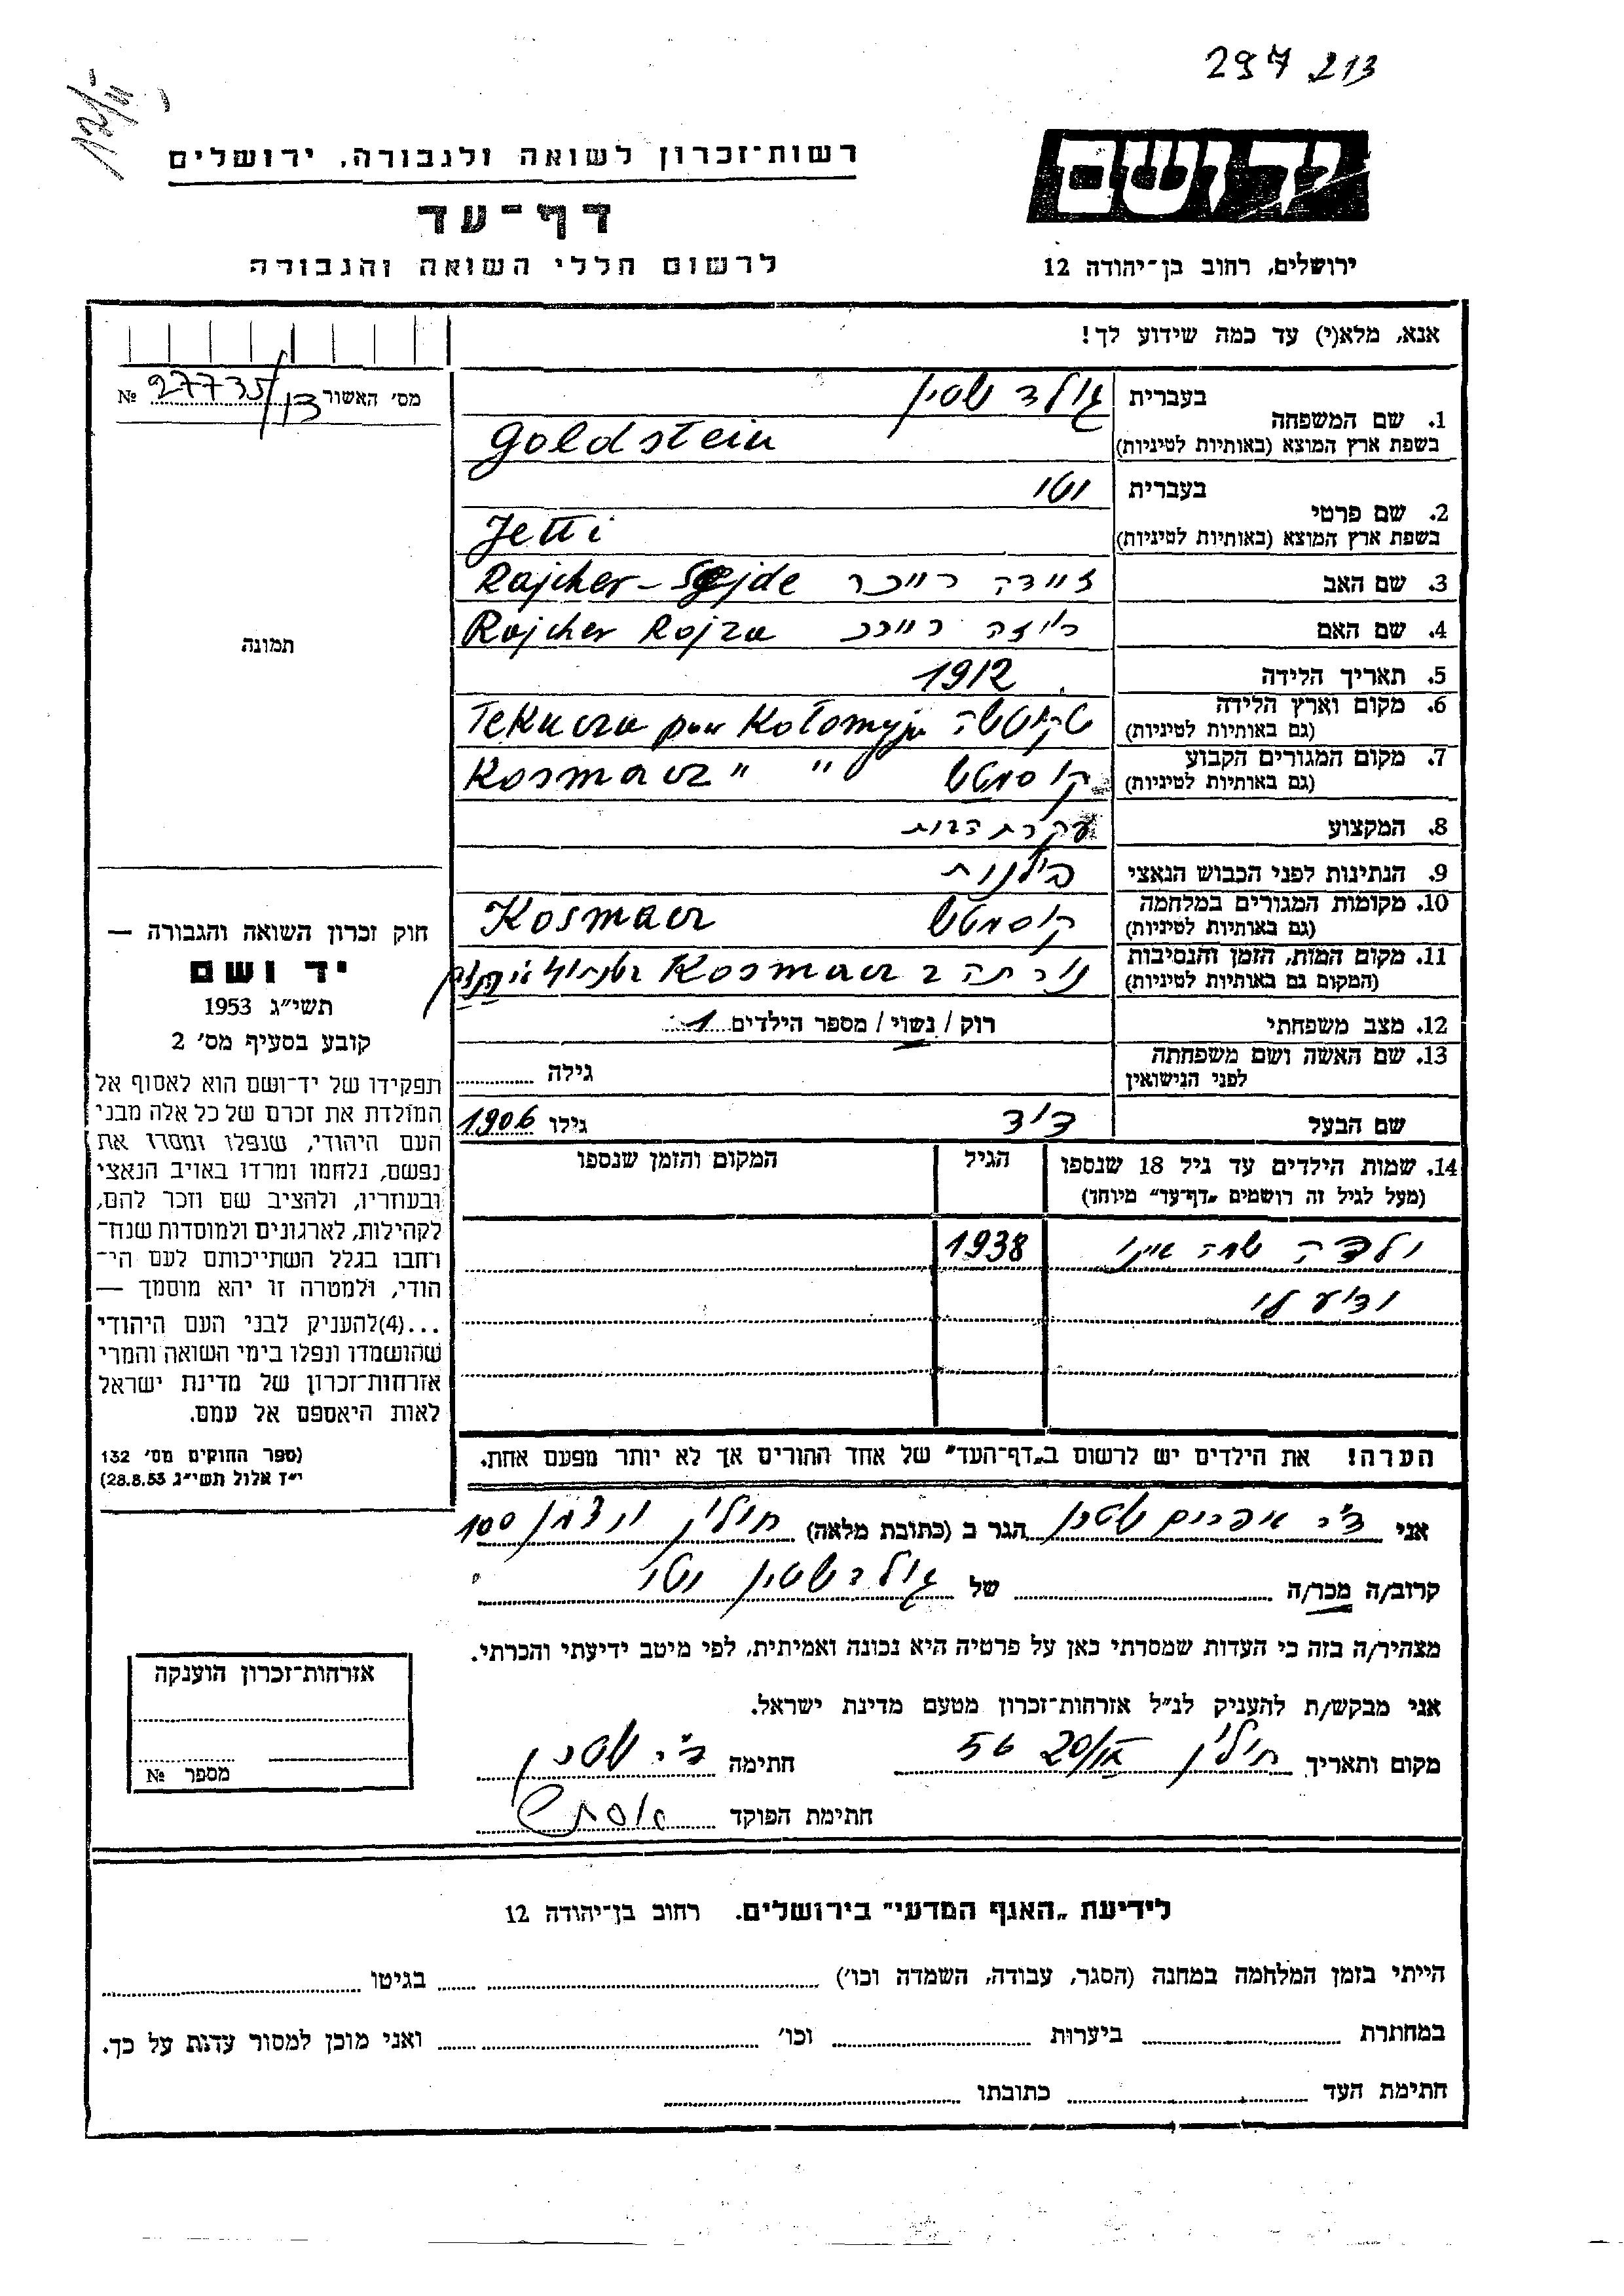 297 213
רשות־זכרון לשואה ולגבורה, ירושלים
יד ושם
דף־עד
לרשום חללי השואה והגבורה
ירושלים, רחוב בן־יהודה 12
אנא, מלא(י) עד כמה שידוע לך!
מס׳ האשור 27735/13 №
1. שם המשפחה בעברית גולדשטין
בשפת ארץ המוצא (באותיות לטיניות) Goldstein
2. שם פרטי בעברית יטי
בשפת ארץ המוצא (באותיות לטיניות) Jetti
3. שם האב זיידה רייכר Rajcher-Sejde
4. שם האם רויזה רייכר Rajcher Rojza
5. תאריך הלידה 1912
6. מקום וארץ הלידה Tekucza pow Kołomyja
(גם באותיות לטיניות)
7. מקום המגורים הקבוע קוסמטש Kosmacz " "
(גם באותיות לטיניות)
8. המקצוע עקרת הבית
9. הנתינות לפני הכבוש הנאצי פולנית
10. מקומות המגורים במלחמה קוסמטש Kosmacz
(גם באותיות לטיניות)
11. מקום המות, הזמן והנסיבות נורתה ב Kosmacz
(המקום גם באותיות לטיניות)
12. מצב משפחתי רוק / נשוי / מספר הילדים 1
13. שם האשה ושם משפחתה לפני הנישואין גילה
שם הבעל דוד גילו 1906
14. שמות הילדים עד גיל 18 שנספו הגיל המקום והזמן שנספו
(מעל לגיל זה רושמים „דף־עד״ מיוחד)
ילדה שמה אינו 1938
ידוע לי
הערה! את הילדים יש לרשום ב„דף־העד״ של אחד ההורים אך לא יותר מפעם אחת.
תמונה
חוק זכרון השואה והגבורה —
יד ושם
תשי״ג 1953
קובע בסעיף מס׳ 2
תפקידו של יד־ושם הוא לאסוף אל
המולדת את זכרם של כל אלה מבני
העם היהודי, שנפלו ומסרו את
נפשם, נלחמו ומרדו באויב הנאצי
ובעוזריו, ולהציב שם וזכר להם,
לקהילות, לארגונים ולמוסדות שנח־
רחבו בגלל השתייכותם לעם הי־
הודי, ולמטרה זו יהא מוסמך —
...(4)להעניק לבני העם היהודי
שהושמדו ונפלו בימי השואה והמרי
אזרחות־זכרון של מדינת ישראל
לאות היאספם אל עמם.
(ספר החוקים מס׳ 132
י״ז אלול תשי״ג 28.8.53)
אני ד״ר אפרים שטרן הגר ב (כתובת מלאה) חולון 100
קרוב/ה מכר/ה של גולדשטין יטי
מצהיר/ה בזה כי העדות שמסרתי כאן על פרטיה היא נכונה ואמיתית, לפי מיטב ידיעתי והכרתי.
אני מבקש/ת להעניק לנ״ל אזרחות־זכרון מטעם מדינת ישראל.
מקום ותאריך חולון 20/IX 56 חתימה ד״ר שטרן
חתימת הפוקד
אזרחות־זכרון הוענקה
מספר №
לידיעת „האגף המדעי״ בירושלים. רחוב בן־יהודה 12
הייתי בזמן המלחמה במחנה (הסגר, עבודה, השמדה וכו׳) בגיטו
במחתרת ביערות וכו׳ ואני מוכן למסור עדות על כך.
חתימת העד כתובתו